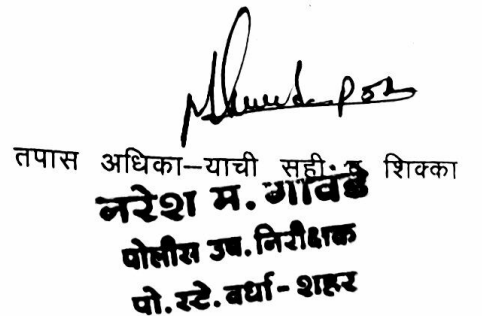 तपास अधिका–याची सही व शिक्का
नरेश म. गावंडे
पोलीस उप. निरीक्षक
पो. स्टे. वर्धा - शहर